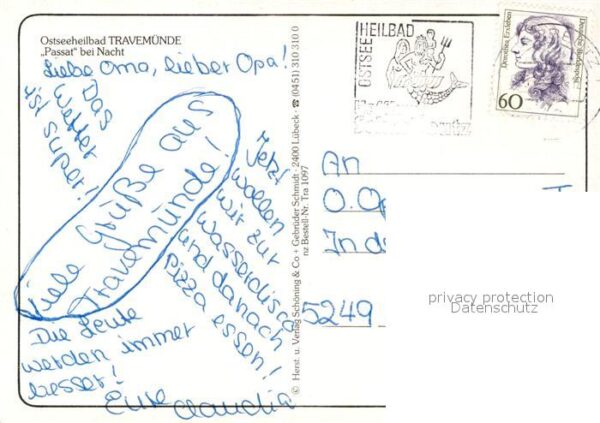 Ostseeheilbad TRAVEMÜNDE
„Passat" bei Nacht
Liebe Oma, lieber Opa!
Das
Wetter
ist super!
Viele Grüße aus
Travemünde!
Jetzt
wollen
wir zur
Wasserdisco
und danach
Pizza essen!
Die Leute
werden immer
besser!
Eure Claudia
© Herst. u. Verlag Schöning & Co + Gebrüder Schmidt · 2400 Lübeck · ☎ (04 51) 310 310 0
nz Bestell-Nr. Tra 1097
OSTSEE
HEILBAD
Dorothea Erxleben
DEUTSCHE BUNDESPOST
60
An
O.
In d
5249
privacy protection
Datenschutz